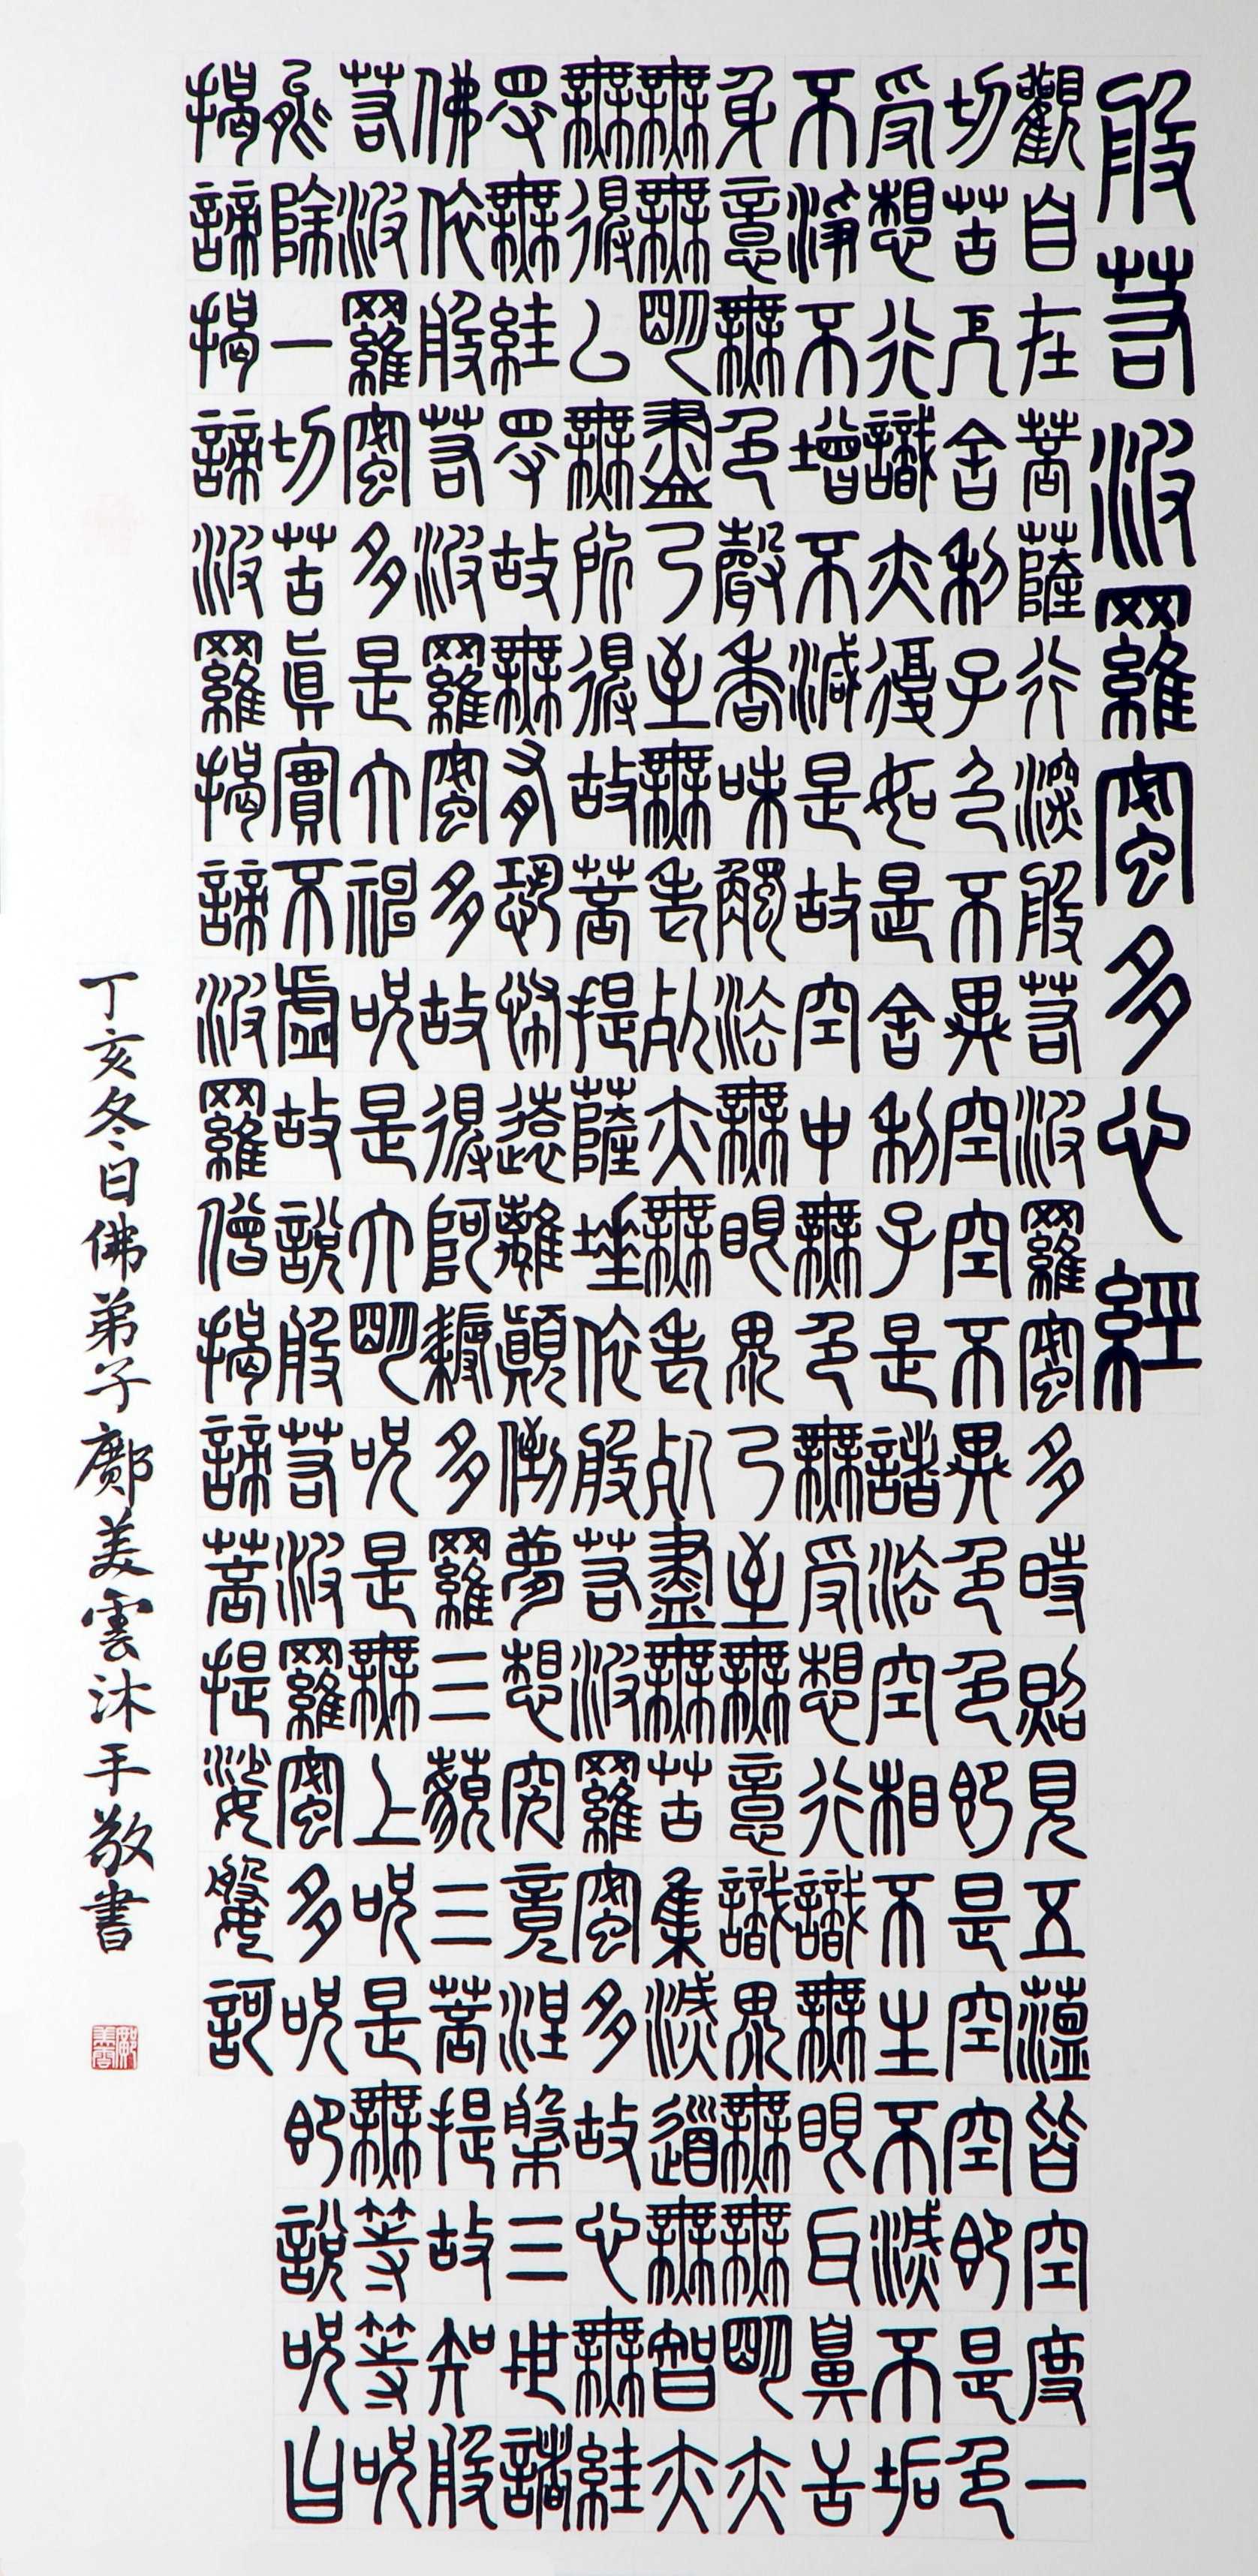 般若波羅蜜多心經
觀自在菩薩行深般若波羅蜜多時照見五蘊皆空度一
切苦厄舍利子色不異空空不異色色即是空空即是色
受想行識亦復如是舍利子是諸法空相不生不滅不垢
不淨不增不減是故空中無色無受想行識無眼耳鼻舌
身意無色聲香味觸法無眼界乃至無意識界無無明亦
無無明盡乃至無老死亦無老死盡無苦集滅道無智亦
無得以無所得故菩提薩埵依般若波羅蜜多故心無絓
㝵無絓㝵故無有恐怖遠離顛倒夢想究竟涅槃三世諸
佛依般若波羅蜜多故得阿耨多羅三藐三菩提故知般
若波羅蜜多是大神呪是大明呪是無上呪是無等等呪
能除一切苦真實不虛故說般若波羅蜜多呪即說呪曰
揭諦揭諦波羅揭諦波羅僧揭諦菩提娑婆訶
丁亥冬日佛弟子鄺美雲沐手敬書
鄺美雲